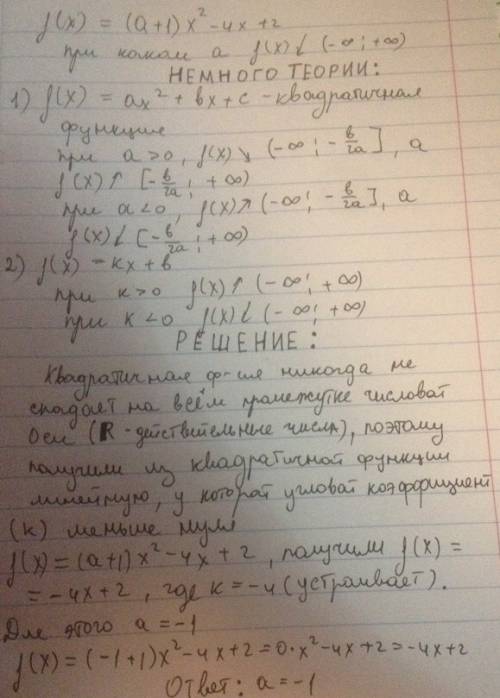 f(x) = (a+1)x² - 4x + 2
при каком a f(x)↓ (-∞; +∞)
НЕМНОГО ТЕОРИИ:
1) f(x) = ax² + bx + c - квадратичная
функция
при a>0, f(x)↘ (-∞; -b/2a], а
f(x)↗ [-b/2a; +∞)
при a<0, f(x)↗ (-∞; -b/2a], а
f(x)↓ [-b/2a; +∞)
2) f(x) = kx + b
при k>0 f(x)↑ (-∞; +∞)
при k<0 f(x)↓ (-∞; +∞)
РЕШЕНИЕ:
Квадратичная ф-ция никогда не
спадает на всём промежутке числовой
оси (R - действительные числа), поэтому
получили из квадратичной функции
линейную, у которой угловой коэффициент
(k) меньше нуля
f(x) = (a+1)x² - 4x + 2, получили f(x) =
= -4x + 2, где k = -4 (устраивает).
Для этого a = -1
f(x) = (-1+1)x² - 4x + 2 = 0·x² - 4x + 2 = -4x + 2
Ответ: a = -1